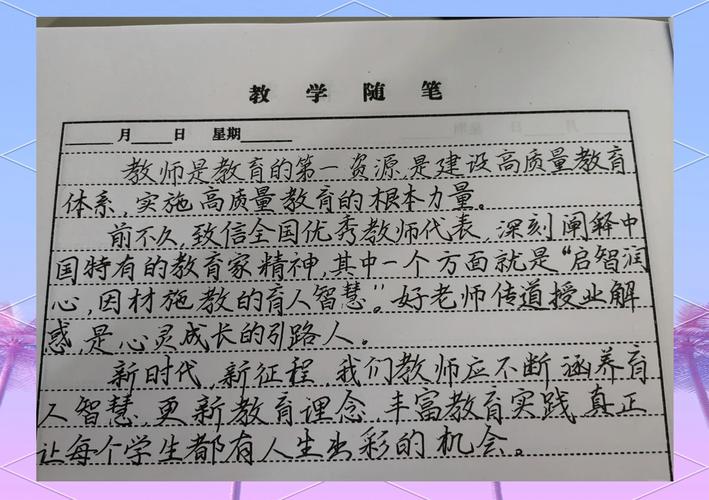 教 学 随 笔
月 日 星期
教师是教育的第一资源,是建设高质量教育
体系,实施高质量教育的根本力量。
前不久,致信全国优秀教师代表,深刻阐释中
国特有的教育家精神,其中一个方面就是“启智润
心,因材施教的育人智慧”。好老师传道授业解
惑,是心灵成长的引路人。
新时代,新征程,我们教师应不断涵养育
人智慧,更新教育理念,丰富教育实践,真正
让每个学生都有人生出彩的机会。